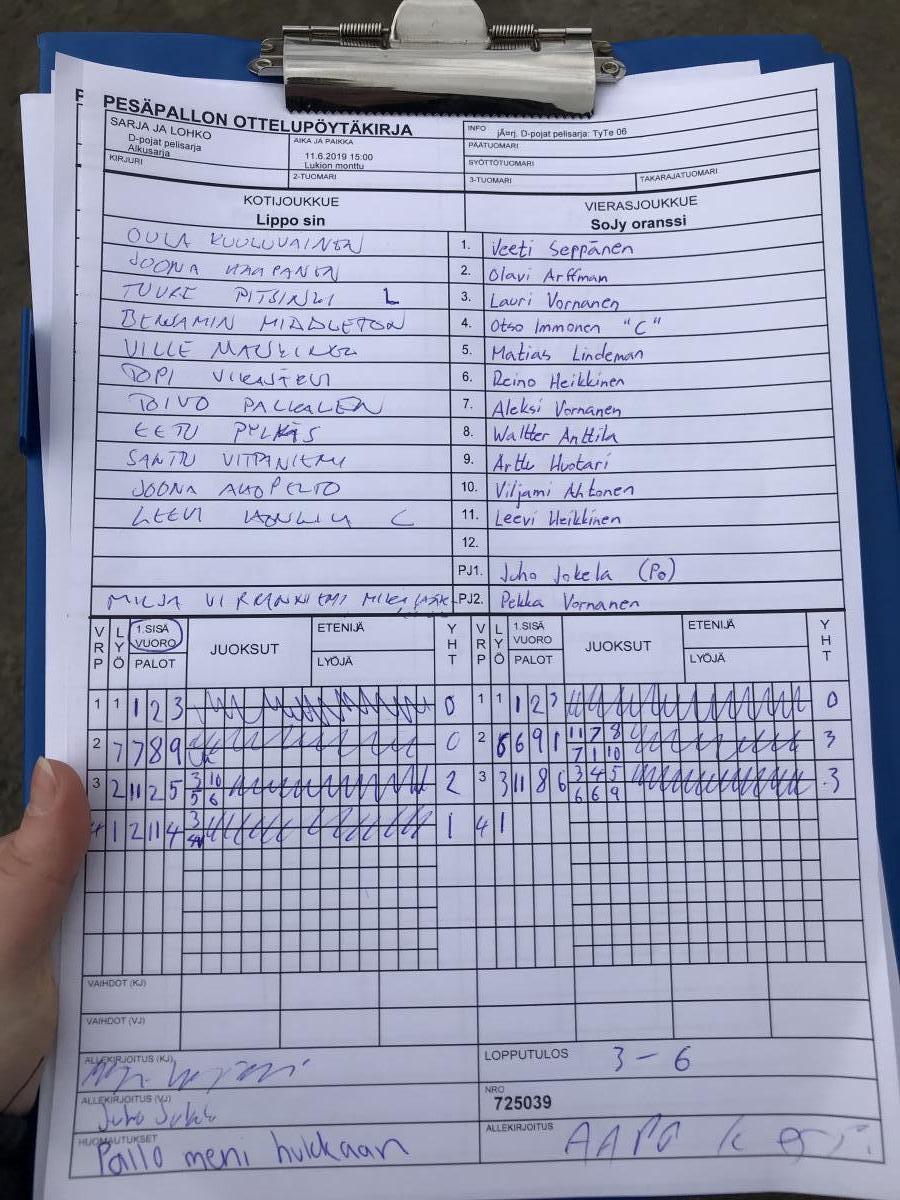 PESÄPALLON OTTELUPÖYTÄKIRJA
SARJA JA LOHKO
D-pojat pelisarja
Alkusarja
AIKA JA PAIKKA
11.6.2019 15:00
Lukion monttu
INFO jÄ¤rj. D-pojat pelisarja: TyTe 06
PÄÄTUOMARI
SYÖTTÖTUOMARI
KIRJURI
2-TUOMARI
3-TUOMARI
TAKARAJATUOMARI
KOTIJOUKKUE
Lippo sin
VIERASJOUKKUE
SoJy oranssi
OULA 1. Veeti Seppänen
JOONA 2. Olavi Arffman
TUURE L 3. Lauri Vornanen
BENJAMIN MIDDLETON 4. Otso Immonen "C"
VILLE 5. Matias Lindeman
TOPI 6. Reino Heikkinen
TOIVO 7. Aleksi Vornanen
EETU PYLKÄS 8. Waltter Anttila
SANTTU VITTANIEMI 9. Arttu Huotari
JOONA AHOPELTO 10. Viljami Ahtonen
LEEVI C 11. Leevi Heikkinen
12.
PJ1. Juho Jokela (Po)
MILJA VIRRANNIEMI PJ2. Pekka Vornanen
VRP LYÖ 1.SISÄ VUORO PALOT JUOKSUT ETENIJÄ LYÖJÄ YHT VRP LYÖ 1.SISÄ VUORO PALOT JUOKSUT ETENIJÄ LYÖJÄ YHT
1 1 1 2 3 0 1 1 1 2 3 0
2 7 7 8 9 0 2 6 6 9 1 11 7 8 3
7 1 10
3 2 11 2 5 3 10 2 3 3 11 8 6 3 4 5 3
5 6 6 6 9
4 1 2 11 4 3 1 4 1
VAIHDOT (KJ)
VAIHDOT (VJ)
ALLEKIRJOITUS (KJ)
LOPPUTULOS 3 - 6
ALLEKIRJOITUS (VJ)
Juho Jokela
NRO
725039
HUOMAUTUKSET
Pallo meni hukkaan
ALLEKIRJOITUS
AAPO